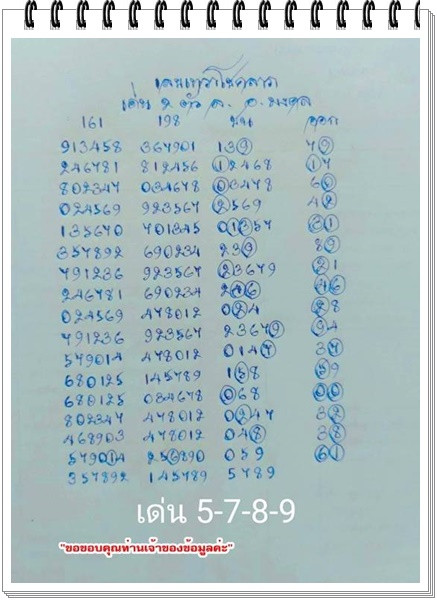 เด่น 2 ตัว
161 198 ชน ออก
913458 367901 139 79
246781 812456 12468 17
802347 034678 03478 60
024569 923567 2569 42
135670 701345 01357 31
357892 690234 239 89
791236 923567 23679 21
246781 690234 246 46
024569 478012 024 28
791236 923567 23679 94
579014 478012 0147 37
680125 145789 158 59
680125 034678 068 00
802347 478012 0247 32
468903 478012 048 38
579014 256890 059 61
357892 145789 5789
เด่น 5-7-8-9
"ขอขอบคุณท่านเจ้าของข้อมูลค่ะ"